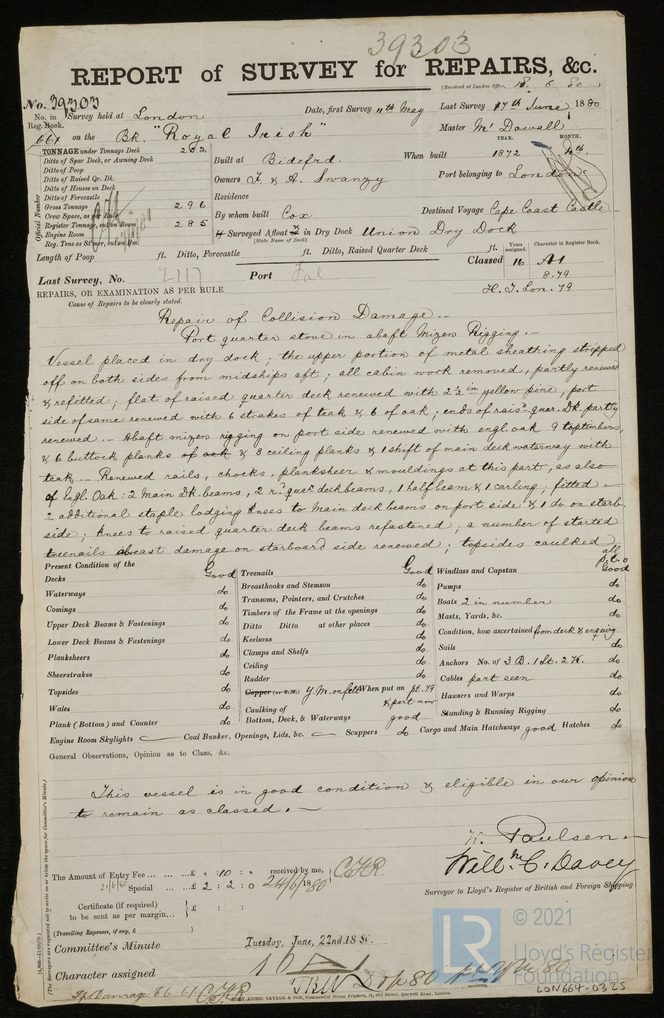 39303
REPORT of SURVEY for REPAIRS, &c.
(Received at London Office, 18. 6. 80)
No. 39303
No. in Survey held at London Date, first Survey 11th May Last Survey 17th June 1880
Reg. Book.
664 on the Bk. "Royal Irish" Master Mc Dowall
TONNAGE under Tonnage Deck 262
Ditto of Spar Deck, or Awning Deck
Ditto of Poop
Ditto of Raised Qr. Dk.
Ditto of Houses on Deck
Ditto of Forecastle
Gross Tonnage 296
Crew Space, as per Rule
Register Tonnage, 285
Engine Room
Reg. Tons as Steamer, cut on Bm.
Official Number
YEAR. MONTH.
Built at Bideford. When built 1872 4th.
Owners F. & A. Swanzy Port belonging to London
Residence
By whom built Cox Destined Voyage Cape Coast Castle
If Surveyed Afloat or in Dry Dock Union Dry Dock
(State Name of Dock)
Length of Poop ft. Ditto, Forecastle ft. Ditto, Raised Quarter Deck ft.
Years assigned. Character in Register Book.
Classed 16 A1
8.79
H. T. Lon. 79
Last Survey, No. 2117 Port Fal
REPAIRS, OR EXAMINATION AS PER RULE
Cause of Repairs to be clearly stated.
Repair of Collision Damage. -
Port quarter stove in abaft Mizen Rigging. -
Vessel placed in dry dock; the upper portion of metal sheathing stripped
off on both sides from midships aft; all cabin work removed, partly renewed
& refitted; flat of raised quarter deck renewed with 2½ in yellow pine, port
side of same renewed with 6 strakes of teak & 6 of oak; ends of rais. quar. Dk. partly
renewed. - Abaft mizen rigging on port side renewed with engl. oak 9 toptimbers,
& 6 buttock planks of oak & 3 ceiling planks & 1 shift of main deck waterway with
teak. - Renewed rails, chocks, planksheer & mouldings at this part, as also
of Engl. Oak: 2 Main Dk. beams, 2 r. quar. deck beams, 1 half beam & 1 carling, fitted
2 additional staple lodging knees to Main deck beams on port side & 1 do on starb.
side; knees to raised quarter deck beams refastened; a number of started
treenails abreast damage on starboard side renewed; topsides caulked all
Present Condition of the
Decks Good
Waterways do
Comings do
Upper Deck Beams & Fastenings do
Lower Deck Beams & Fastenings do
Planksheers do
Sheerstrakes do
Topsides do
Wales do
Plank (Bottom) and Counter do
Treenails Good
Breasthooks and Stemson do
Transoms, Pointers, and Crutches do
Timbers of the Frame at the openings do
Ditto Ditto at other places do
Keelsons do
Clamps and Shelfs do
Ceiling do
Rudder do
Copper (or Y.M.) Y. M. on felt When put on pt. 79
& part now
Caulking of Bottom, Deck, & Waterways good
Windlass and Capstan Good
Pumps do
Boats 2 in number do
Masts, Yards, &c. do
Condition, how ascertained from deck & enquiry
Sails do
Anchors No. of 3 B. 1 St. 2 K. do
Cables part seen do
Hawsers and Warps do
Standing & Running Rigging do
Engine Room Skylights Coal Bunker, Openings, Lids, &c. Scuppers do Cargo and Main Hatchways good Hatches do
General Observations, Opinion as to Class, &c.
This vessel is in good condition & eligible in our opinion
to remain as classed. -
H. Paulsen.
Willm. C. Davey
Surveyor to Lloyd's Register of British and Foreign Shipping
The Amount of Entry Fee £ : 10 : received by me,
21/6/80 Special £ 2 : 2 : 0 24/6/1880
Certificate (if required) to be sent as per margin £ : :
(Travelling Expenses, if any, £ )
Committee's Minute Tuesday, June, 22nd. 1880.
Character assigned
LON664-0325
© 2021
LR
Lloyd's Register
Foundation